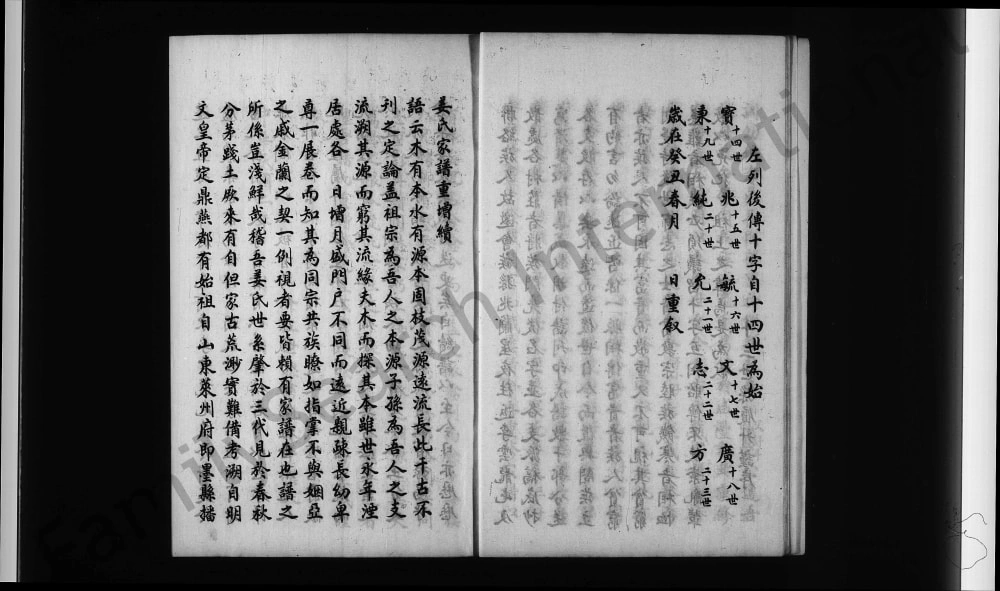 左列後傳十字自十四世為始
寶十四世 兆十五世 毓十六世 文十七世 廣十八世
秉十九世 純二十世 允二十一世 志二十二世 方二十三世
歲在癸丑春月 日重叙
姜氏家譜重增續
語云木有本水有源本固枝茂源遠流長此千古不
刊之定論盖祖宗為吾人之本源子孫為吾人之支
流溯其源而窮其流緣夫木而探其本雖世永年湮
居處各 日增月盛門户不同而遠近親疎長幼卑
尊一展卷而知其為同宗共族瞭如指掌不與姻亞
之戚金蘭之契一例視者要皆賴有家譜在也譜之
所係豈淺鮮哉稽吾姜氏世系肇於三代見於春秋
分茅踐土厥來有自但家古荒渺實難備考溯自明
文皇帝定鼎燕都有始祖自山東萊州府即墨縣播
FamilySearch International